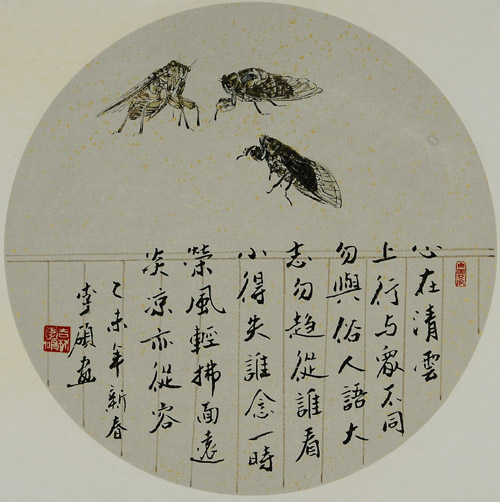 心在清雲
上行与眾不同
勿與俗人語大
志勿趨從誰看
小得失誰念一時
榮風輕拂面遠
炎凉亦從容
乙未年新春
李碩画